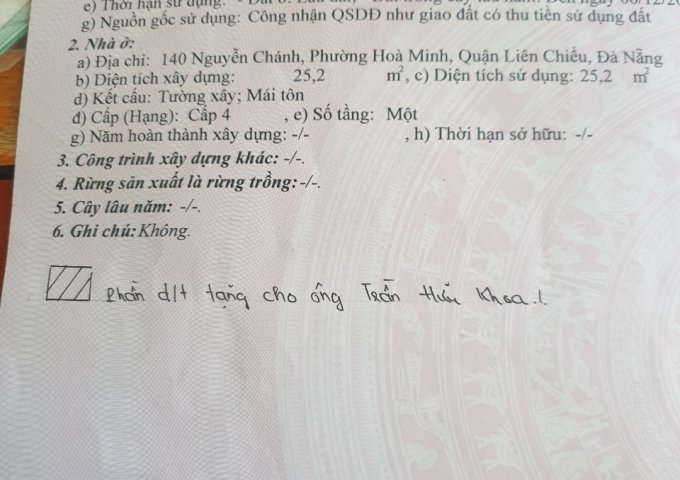 e) Thời hạn sử dụng:
g) Nguồn gốc sử dụng: Công nhận QSDĐ như giao đất có thu tiền sử dụng đất
2. Nhà ở:
a) Địa chỉ: 140 Nguyễn Chánh, Phường Hoà Minh, Quận Liên Chiểu, Đà Nẵng
b) Diện tích xây dựng: 25,2 m², c) Diện tích sử dụng: 25,2 m²
d) Kết cấu: Tường xây; Mái tôn
đ) Cấp (Hạng): Cấp 4 , e) Số tầng: Một
g) Năm hoàn thành xây dựng: -/- , h) Thời hạn sở hữu: -/-
3. Công trình xây dựng khác: -/-.
4. Rừng sản xuất là rừng trồng: -/-.
5. Cây lâu năm: -/-.
6. Ghi chú: Không.
Phần d/t tặng cho ông Trần Hữu Khoa./.